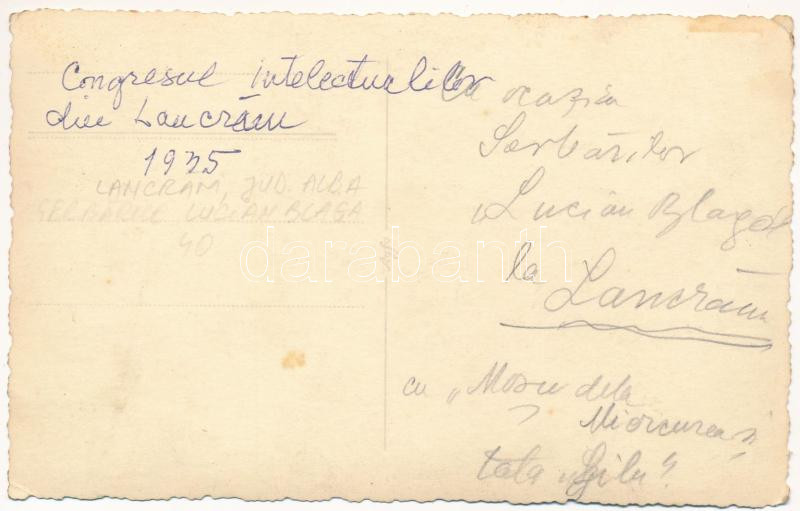 Congresul intelectualilor
din Lancrăm
1935
LANCRAM, JUD. ALBA
SERBARILE LUCIAN BLAGA
40
Cu ocazia
Serbărilor
„Lucian Blaga"
la
Lancrăm
cu „Moșu dela
Miercurea" și
tata
darabanth